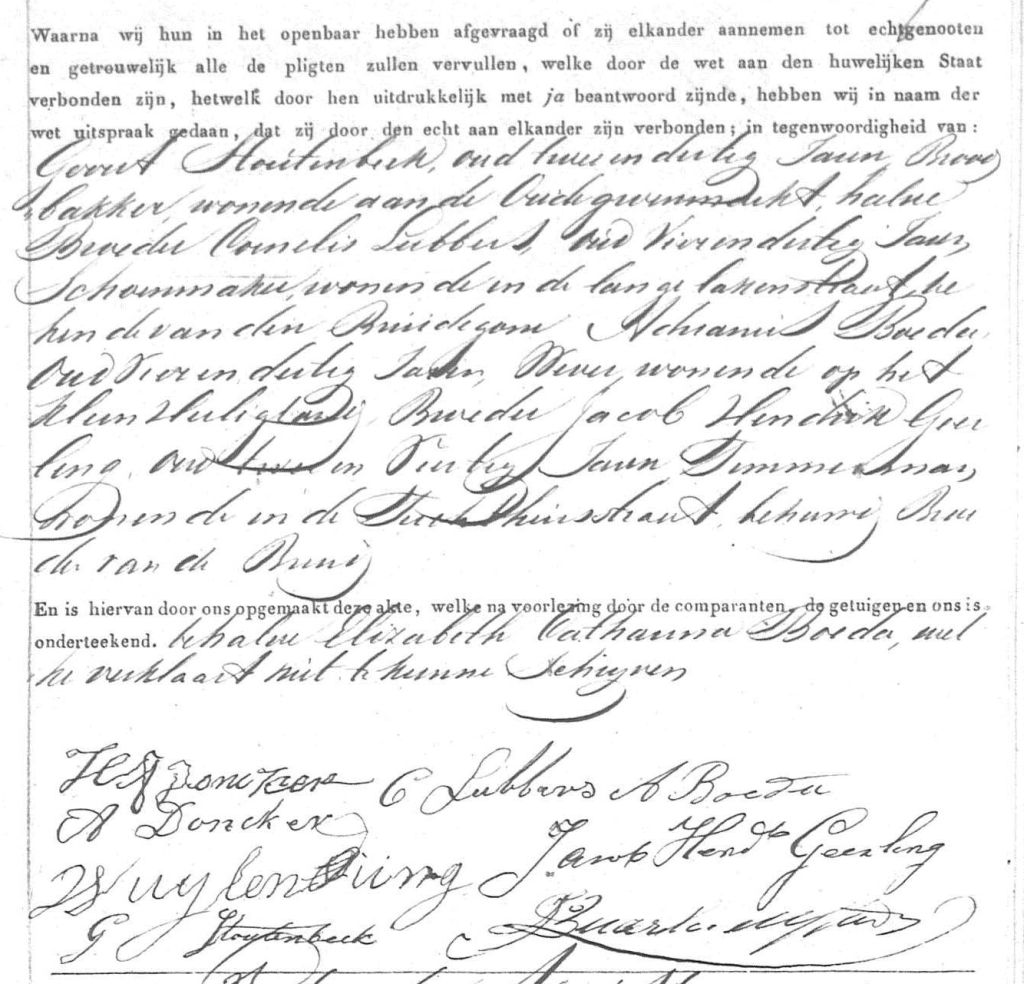 Waarna wij hun in het openbaar hebben afgevraagd of zij elkander aannemen tot echtgenooten
en getrouwelijk alle de pligten zullen vervullen, welke door de wet aan den huwelijken Staat
verbonden zijn, hetwelk door hen uitdrukkelijk met ja beantwoord zijnde, hebben wij in naam der
wet uitspraak gedaan, dat zij door den echt aan elkander zijn verbonden; in tegenwoordigheid van:
Geurt Houtenbeek, oud twee en dertig Jaren, Brood
bakker, wonende aan de Oudegroenmarkt, halve
Broeder Cornelis Lubbers, oud Vier en dertig Jaren,
Schoenmaker, wonende in de lange lakenstraat, be
kende van den Bruidegom Adrianus Boeder,
Oud Vier en dertig Jaren, Wever, wonende op het
klein Heiligland, Broeder Jacob Hendrik Geer
ling, oud twee en Veertig Jaren Timmerman,
wonende in de straat, behuwd Broe
der van de Bruid
En is hiervan door ons opgemaakt deze akte, welke na voorlezing door de comparanten, de getuigen en ons is
onderteekend. behalve Elizabeth Catharina Boeder, wel
ke verklaart niet te kunnen Schrijven
H A Doncker C Lubbers A Boeder
A Doncker
Jacob Hendk Geerling
G Hoytenbeek